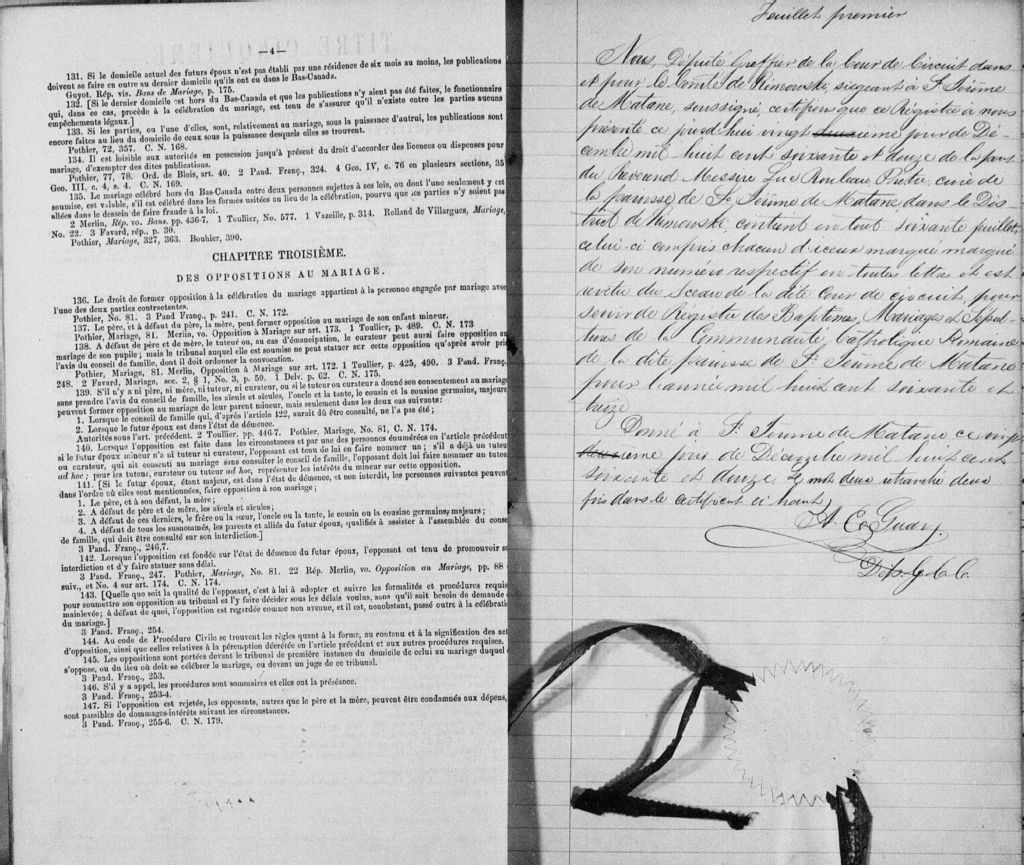 —4—
131. Si le domicile actuel des futurs époux n'est pas établi par une résidence de six mois au moins, les publications
doivent se faire en outre au dernier domicile qu'ils ont eu dans le Bas-Canada.
Guyot, Rép. vis. Bans de Mariage, p. 175.
132. [Si le dernier domicile est hors du Bas-Canada et que les publications n'y aient pas été faites, le fonctionnaire
qui, dans ce cas, procède à la célébration du mariage, est tenu de s'assurer qu'il n'existe entre les parties aucuns
empêchements légaux.]
133. Si les parties, ou l'une d'elles, sont, relativement au mariage, sous la puissance d'autrui, les publications sont
encore faites au lieu du domicile de ceux sous la puissance desquels elles se trouvent.
Pothier, 72, 357. C. N. 168.
134. Il est loisible aux autorités en possession jusqu'à présent du droit d'accorder des licences ou dispenses pour
mariage, d'exempter des dites publications.
Pothier, 77, 78. Ord. de Blois, art. 40. 2 Pand. Franç., 324. 4 Geo. IV, c. 76 en plusieurs sections, 35
Geo. III, c. 4, s. 4. C. N. 169.
135. Le mariage célébré hors du Bas-Canada entre deux personnes sujettes à ses lois, ou dont l'une seulement y est
soumise, est valable, s'il est célébré dans les formes usitées au lieu de la célébration, pourvu que les parties n'y soient pas
allées dans le dessein de faire fraude à la loi.
2 Merlin, Rép. vo. Bans. pp. 436-7. 1 Toullier, No. 577. 1 Vazeille, p. 314. Rolland de Villargues, Mariage,
No. 22. 3 Favard, rép., p. 39.
Pothier, Mariage, 327, 363. Bouhier, 390.
CHAPITRE TROISIÈME.
DES OPPOSITIONS AU MARIAGE.
136. Le droit de former opposition à la célébration du mariage appartient à la personne engagée par mariage avec
l'une des deux parties contractantes.
Pothier, No. 81. 3 Pand Franç., p. 241. C. N. 172.
137. Le père, et à défaut du père, la mère, peut former opposition au mariage de son enfant mineur.
Pothier, Mariage, 81. Merlin, vo. Opposition à Mariage sur art. 173. 1 Toullier, p. 489. C. N. 173
138. A défaut de père et de mère, le tuteur ou, au cas d'émancipation, le curateur peut aussi faire opposition au
mariage de son pupile; mais le tribunal auquel elle est soumise ne peut statuer sur cette opposition qu'après avoir pris
l'avis du conseil de famille, dont il doit ordonner la convocation.
Pothier, Mariage, 81. Merlin, Opposition à Mariage sur art. 172. 1 Toullier, p. 425, 490. 3 Pand. Franç.
248. 2 Favard, Mariage, sec. 2, § 1, No. 3, p. 59. 1 Delv. p. 62. C. N. 175.
139. S'il n'y a ni père, ni mère, ni tuteur, ni curateur, ou si le tuteur ou curateur a donné son consentement au mariage
sans prendre l'avis du conseil de famille, les aïeuls et aïeules, l'oncle et la tante, le cousin et la cousine germains, majeurs
peuvent former opposition au mariage de leur parent mineur, mais seulement dans les deux cas suivants:
1. Lorsque le conseil de famille qui, d'après l'article 122, aurait dû être consulté, ne l'a pas été;
2. Lorsque le futur époux est dans l'état de démence.
Autorités sous l'art. précédent. 2 Toullier, pp. 446-7. Pothier, Mariage, No. 81, C. N. 174.
140. Lorsque l'opposition est faite dans les circonstances et par une des personnes énumérées en l'article précédent
si le futur époux mineur n'a ni tuteur ni curateur, l'opposant est tenu de lui en faire nommer un; s'il a déjà un tuteur
ou curateur, qui ait consenti au mariage sans consulter le conseil de famille, l'opposant doit lui faire nommer un tuteur
ad hoc; pour les tuteur, curateur ou tuteur ad hoc, représenter les intérêts du mineur sur cette opposition.
141. [Si le futur époux, étant majeur, est dans l'état de démence, et non interdit, les personnes suivantes peuvent
dans l'ordre où elles sont mentionnées, faire opposition à son mariage;
1. Le père, et à son défaut, la mère;
2. A défaut de père et de mère, les aïeuls et aïeules;
3. A défaut de ces derniers, le frère ou la sœur, l'oncle ou la tante, le cousin ou la cousine germains, majeurs;
4. A défaut de tous les susnommés, les parents et alliés du futur époux, qualifiés à assister à l'assemblée du conse
de famille, qui doit être consulté sur son interdiction.]
3 Pand. Franç., 246,7.
142. Lorsque l'opposition est fondée sur l'état de démence du futur époux, l'opposant est tenu de promouvoir s
interdiction et d'y faire statuer sans délai.
3 Pand. Franç., 247. Pothier, Mariage, No. 81. 22 Rép. Merlin, vo. Opposition au Mariage, pp. 88
suiv., et No. 4 sur art. 174. C. N. 174.
143. [Quelle que soit la qualité de l'opposant, c'est à lui à adopter et suivre les formalités et procédures requis
pour soumettre son opposition au tribunal et l'y faire décider sous les délais voulus, sans qu'il soit besoin de demande
mainlevée; à défaut de quoi, l'opposition est regardée comme non avenue, et il est, nonobstant, passé outre à la célébrati
du mariage.]
3 Pand. Franç., 254.
144. Au code de Procédure Civile se trouvent les règles quant à la forme, au contenu et à la signification des act
d'opposition, ainsi que celles relatives à la péremption décrétée en l'article précédent et aux autres procédures requises.
145. Les oppositions sont portées devant le tribunal de première instance du domicile de celui au mariage duquel
s'oppose, ou du lieu où doit se célébrer le mariage, ou devant un juge de ce tribunal.
3 Pand. Franç., 253.
146. S'il y a appel, les procédures sont sommaires et elles ont la préséance.
3 Pand. Franç., 253-4.
147. Si l'opposition est rejetée, les opposants, autres que le père et la mère, peuvent être condamnés aux dépens,
sont passibles de dommages-intérêts suivant les circonstances.
3 Pand. Franç., 255-6. C. N. 179.
Feuillet premier
Nous, Député Greffier de la Cour de Circuit dans
et pour le Comté de Rimouski, siegeant à St. Jérôme
de Matane, soussigné, certifions que ce Régistre à nous
présenté ce jourd'hui vingt ième jour de Dé-
cembre mil huit cent soixante et douze de la part
du Révérend Messire Luc Rouleau, Prêtre, curé de
la paroisse de St. Jérôme de Matane dans le Dis-
trict de Rimouski, contient en tout soixante feuillets
celui-ci compris chacun d'iceux marqué marqué
de son numéro respectif en toutes lettres et est
revêtu du Sceau de la dite Cour de circuit, pour
servir de Régistre des Baptêmes, Mariages et Sépul-
tures de la Communauté Catholique Romaine
de la dite paroisse de St. Jérôme de Matane
pour l'année mil huit cent soixante et
treize
Donné à St. Jérôme de Matane ce vingt
ième jour de Décembre mil huit cent
soixante et douze. Le mot deux retranché deux
fois dans le certificat ci haut
D. G. C. C.